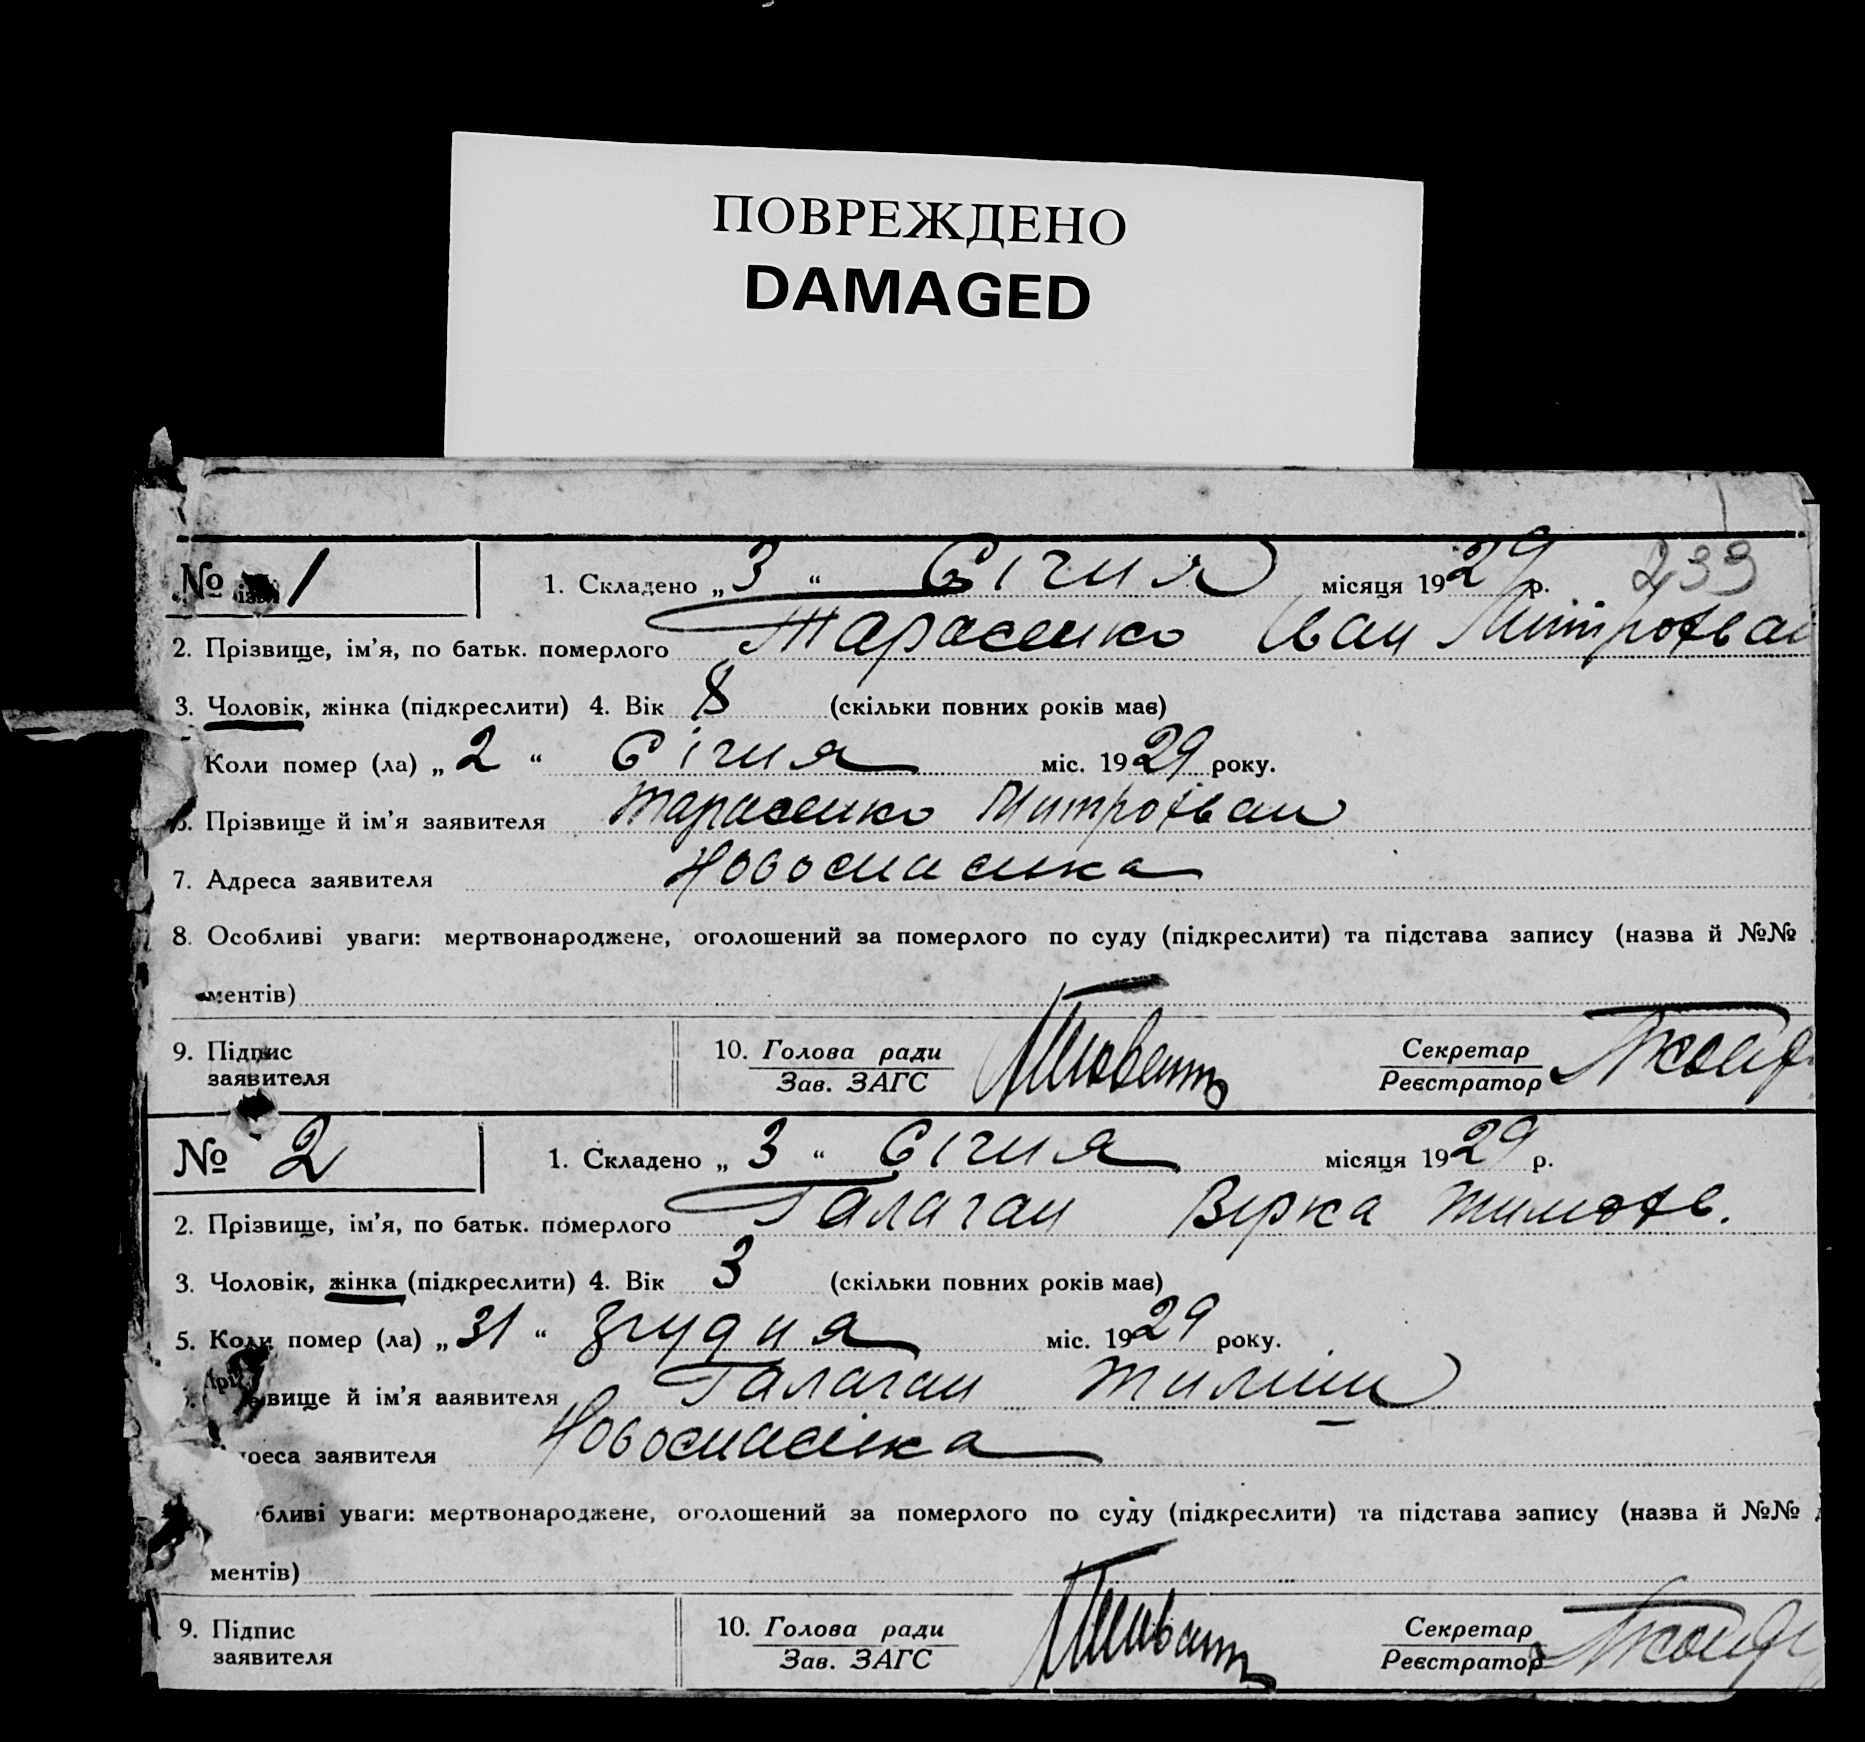 ПОВРЕЖДЕНО
DAMAGED
№ 1
1. Складено „3“ Січня місяця 1929 р. 239
2. Прізвище, ім’я, по батьк. померлого Тарасенко Іван Митрофван
3. Чоловік, жінка (підкреслити) 4. Вік 8 (скільки повних років має)
Коли помер (ла) „2“ Січня міс. 1929 року.
6. Прізвище й ім’я заявителя Тарасенко Митрофван
7. Адреса заявителя Новоспасівка
8. Особливі уваги: мертвонароджене, оголошений за померлого по суду (підкреслити) та підстава запису (назва й №№
ментів)
9. Підпис заявителя
10. Голова ради
Зав. ЗАГС
Секретар
Реєстратор
№ 2
1. Складено „3“ Січня місяця 1929 р.
2. Прізвище, ім’я, по батьк. померлого Галаган Вірка Тимофв.
3. Чоловік, жінка (підкреслити) 4. Вік 3 (скільки повних років має)
5. Коли помер (ла) „31“ Згрудня міс. 1929 року.
вище й ім’я ааявителя Галаган Тиміш
реса заявителя Новоспасівка
бливі уваги: мертвонароджене, оголошений за померлого по суду (підкреслити) та підстава запису (назва й №№
ментів)
9. Підпис заявителя
10. Голова ради
Зав. ЗАГС
Секретар
Реєстратор